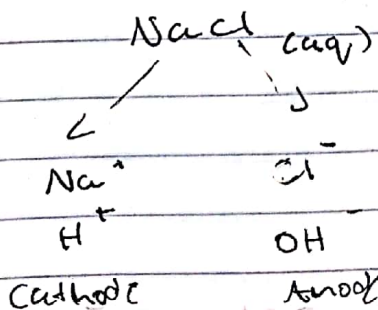 NaCl (aq)
Na⁺ Cl⁻
H⁺ OH⁻
Cathode Anode